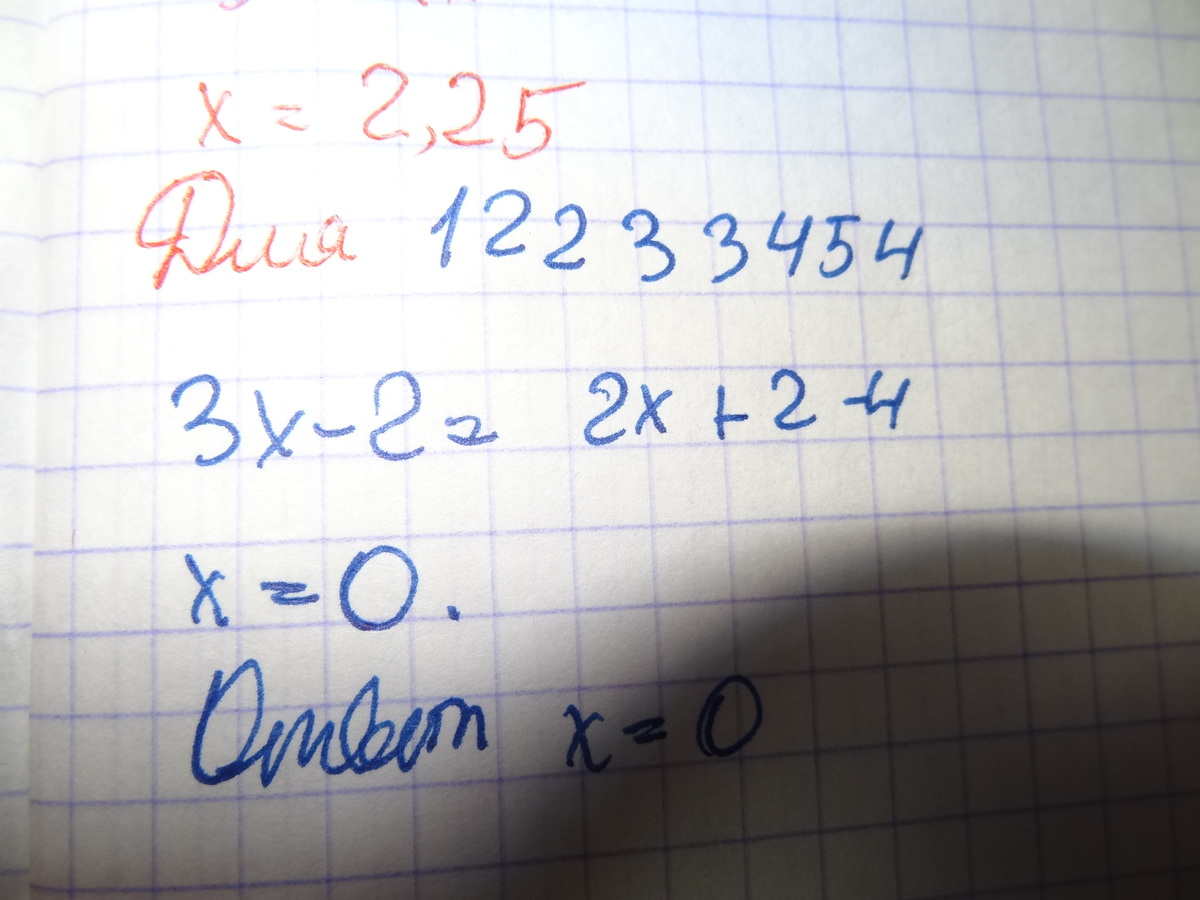 x = 2,25
Дша 12233454
3x - 2 = 2x + 2 - 4
x = 0.
Ответ x = 0